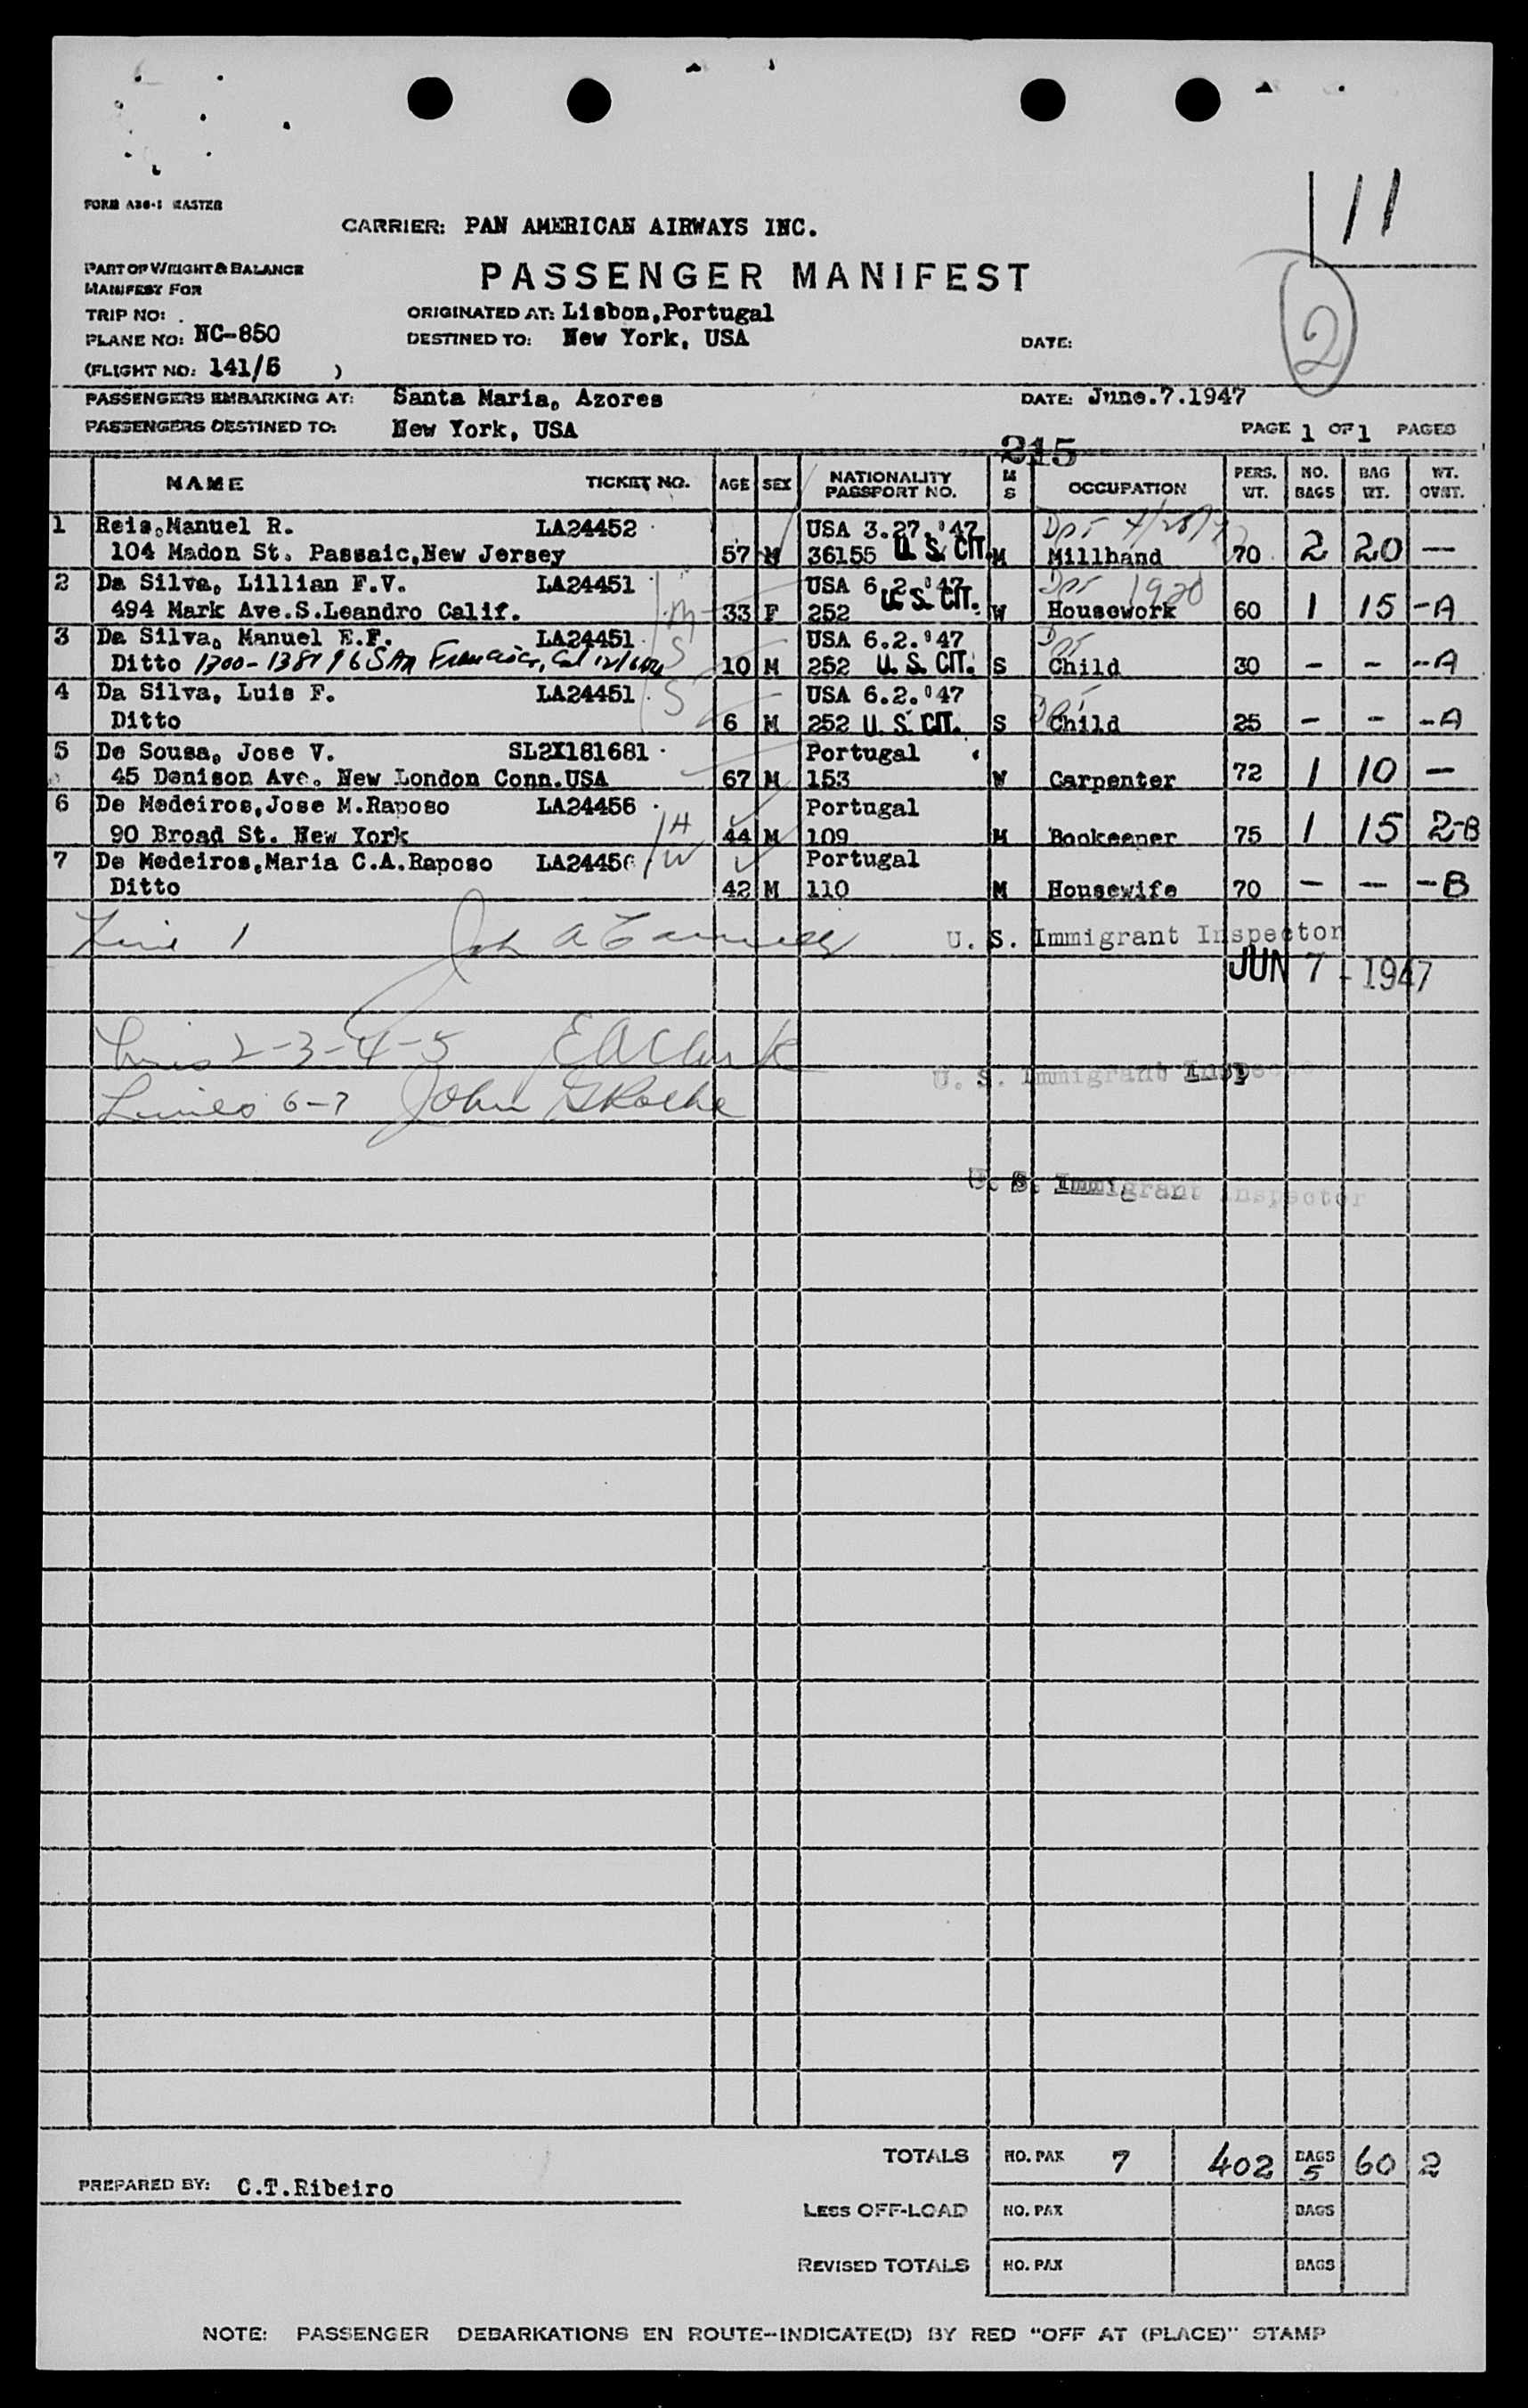 11
FORM A30-1 MASTER
CARRIER: PAN AMERICAN AIRWAYS INC.
PART OF WEIGHT & BALANCE
PASSENGER MANIFEST
MANIFEST FOR
2
TRIP NO: .
ORIGINATED AT: Lisbon,Portugal
PLANE NO: NC-850
DESTINED TO: New York, USA
DATE:
(FLIGHT NO: 141/6 )
PASSENGERS EMBARKING AT: Santa Maria, Azores
DATE: June.7.1947
PASSENGERS DESTINED TO: New York, USA
PAGE 1 OF 1 PAGES
215
NAME TICKET NO. AGE SEX NATIONALITY PASSPORT NO. M S OCCUPATION PERS. WT. NO. BAGS BAG WT. WT. OVWT.
1 Reis,Manuel R. LA24452 USA 3.27.'47
104 Madon St. Passaic,New Jersey 57 M 36155 U. S. CIT. M Millhand 70 2 20 —
2 Da Silva, Lillian F.V. LA24451 USA 6.2.'47 1920
494 Mark Ave.S.Leandro Calif. M 33 F 252 U. S. CIT. W Housework 60 1 15 -A
3 Da Silva, Manuel E.F. LA24451 USA 6.2.'47
Ditto 1300- San Francisco, Cal S 10 M 252 U. S. CIT. S Child 30 - - -A
4 Da Silva, Luis F. LA24451 USA 6.2.'47
Ditto S 6 M 252 U. S. CIT. S Child 25 - - -A
5 De Sousa, Jose V. SL2X181681 Portugal
45 Denison Ave. New London Conn.USA 67 M 153 W Carpenter 72 1 10 —
6 De Medeiros,Jose M.Raposo LA24456 Portugal
90 Broad St. New York H 44 M 109 M Bookeeper 75 1 15 2-B
7 De Medeiros,Maria C.A.Raposo LA24456 W Portugal
Ditto 42 M 110 M Housewife 70 - - -B
Line 1 John A U. S. Immigrant Inspector
JUN 7 - 1947
Lines 2-3-4-5 EA Clark
U. S. Immigrant Inspector
Lines 6-7 John G Roche
U. S. Immigrant Inspector
TOTALS NO. PAX 7 402 BAGS 5 60 2
PREPARED BY: C.T.Ribeiro
LESS OFF-LOAD NO. PAX BAGS
REVISED TOTALS NO. PAX BAGS
NOTE: PASSENGER DEBARKATIONS EN ROUTE--INDICATE(D) BY RED "OFF AT (PLACE)" STAMP